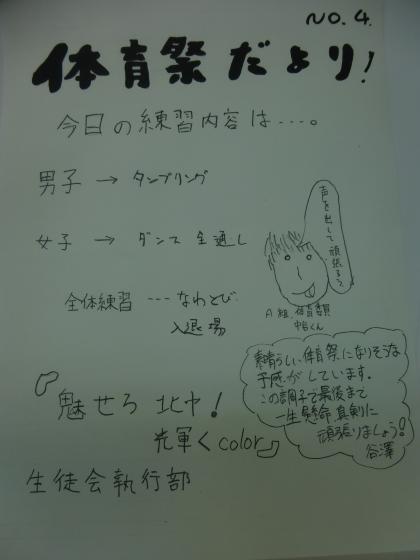 NO.4.
体育祭だより!
今日の練習内容は‥‥。
男子→タンブリング
女子→ダンス全通し
声を出して頑張ろう。
全体練習 ‥‥なわとび
入退場
A組 体育委員
くん
素晴らしい体育祭になりそうな
予感がしています。
この調子で最後まで
一生懸命、真剣に
頑張りましょう!
谷澤
『魅せろ 北中!
光輝くcolor』
生徒会執行部